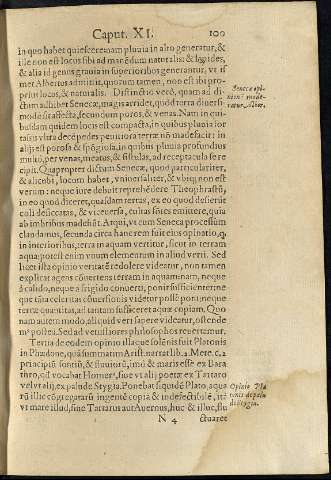 Caput. XI. 100
in quo habet quiescere: nam pluuia in alto generatur, &
ille non est locus sibi ad manédum naturalis: & lapides,
& alia id genus grauia in superioribus generantur, vt in-
met Albertus admittit, quorum tamen, non est ibi pro-
prius locus, & naturalis. Distinctio verò, quam ad di-
ctum adhibet Senecæ, magis arridet, quòd terra diuersi-
modè sit affecta, secundum poros, & venas. Nam in qui-
busdam quidem locus est compacta, in quibus pluuia for-
tassis vltra decé pedes penitiora terræ nõ madefacit: in
alijs porosa & spõgiola, in quibus pluuia profundius
multò, per venas, meatus, & fistulas, ad receptacula se re
cipit. Quapropter dictum Senecæ, quod particulariter,
& alicubi, locum habet, vniuersaliter, & vbiq; non est
verum: neque iure debuit reprehédere Theophrastũ,
in eo quod diceret, quasdam terras, ex eo quod desierũt
coli desiccatas, & viceuersa, cultas fótes emittere, quia
ab imbribus madefiũt. Atqui, vt cum Seneca processum
claudamus, secunda circa hanc rem fuit eius opinio, q,
in interioribus, terra in aquam vertitur, sicut in terram
aqua: potest enim vnum elementum in aliud verti. Sed
licet ista opinio veritaté redolere videatur, non tamen
explicat agens cõuertens terram in aquam: nam, neque
à calido, neque à frigido conuerti, ponit sufficienter: ne
que tãta celeritas cõuersionis videtur posse poni: neque
terræ quantitas, ad tantam sufficeret aquæ copiam. Quo
nam autem modo, aliquid veri sapere videatur, ostende
mº postea. Sed ad vetustiores philosophos reuertamur.
Tertia de eodem opinio illa quæ solénis fuit Platonis
in Phædone, quã summatim Arist. narrat lib. 2. Mete. c. 2
principiũ fontiũ, & fluuiorũ, imò & maris esse ex Bara
thro, qd vocabat Homerº, siue vt alij poetæ ex Tartaro
vel vt alij, ex palude Stygia. Ponebat siquidé Plato, aqua
rũ illic cõgregatarũ ingenté copiã & indefectibilé, itã
vt mare illud, siue Tartarus aut Auernus, huc & illuc, flu
N 4 ctuaret
Seneca opi-
ratur. Alber.
Opinio Pla-
tonis de palu
de Stygia.